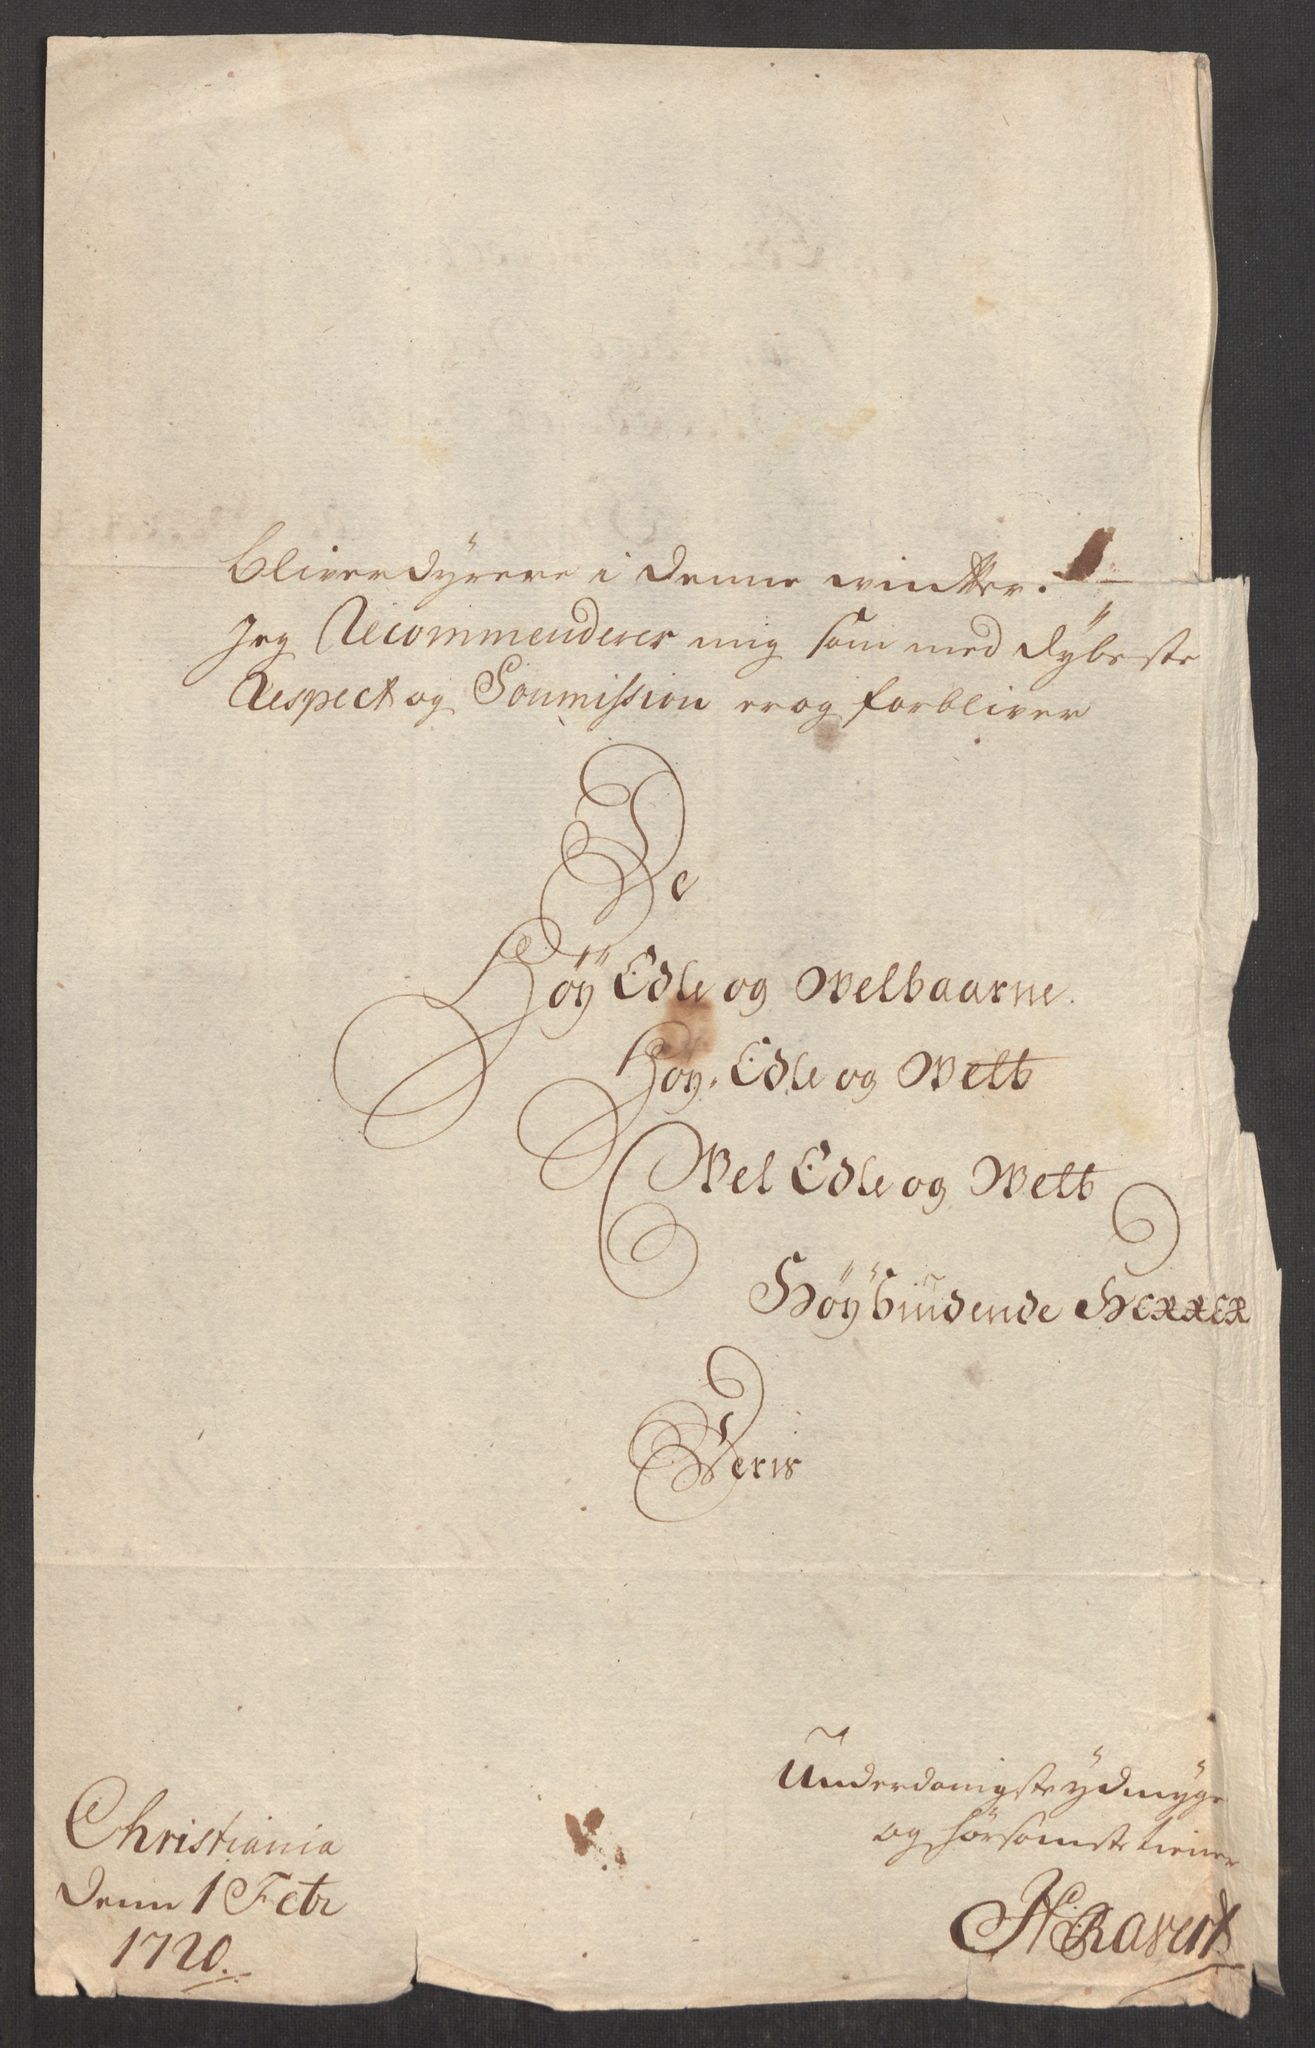 bliver dÿrere i denne vindtter.
Jeg Recommenderer mig som med dÿbeste
Respect og Soumission er og forbliver
De
Höÿ Edle og Welbaarne.
Höy. Edle og Welb
Wel Edle og Welb
Höÿbiudende HERRER
Deris
Underdanigste ÿdmÿge
og hörsomste tiener
Christiania
Denn 1 Febr
1720.